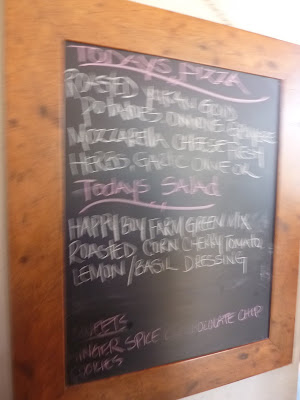 TODAYS PIZZA
ROASTED YUKON GOLD
POTATOES, ONIONS,
MOZZARELLA CHEESE, FRESH
HERBS, GARLIC OLIVE OIL
TODAYS SALAD
HAPPY BOY FARM GREEN MIX
ROASTED CORN CHERRY TOMATO
LEMON/BASIL DRESSING
SWEETS
GINGER SPICE CHOCOLATE CHIP
COOKIES